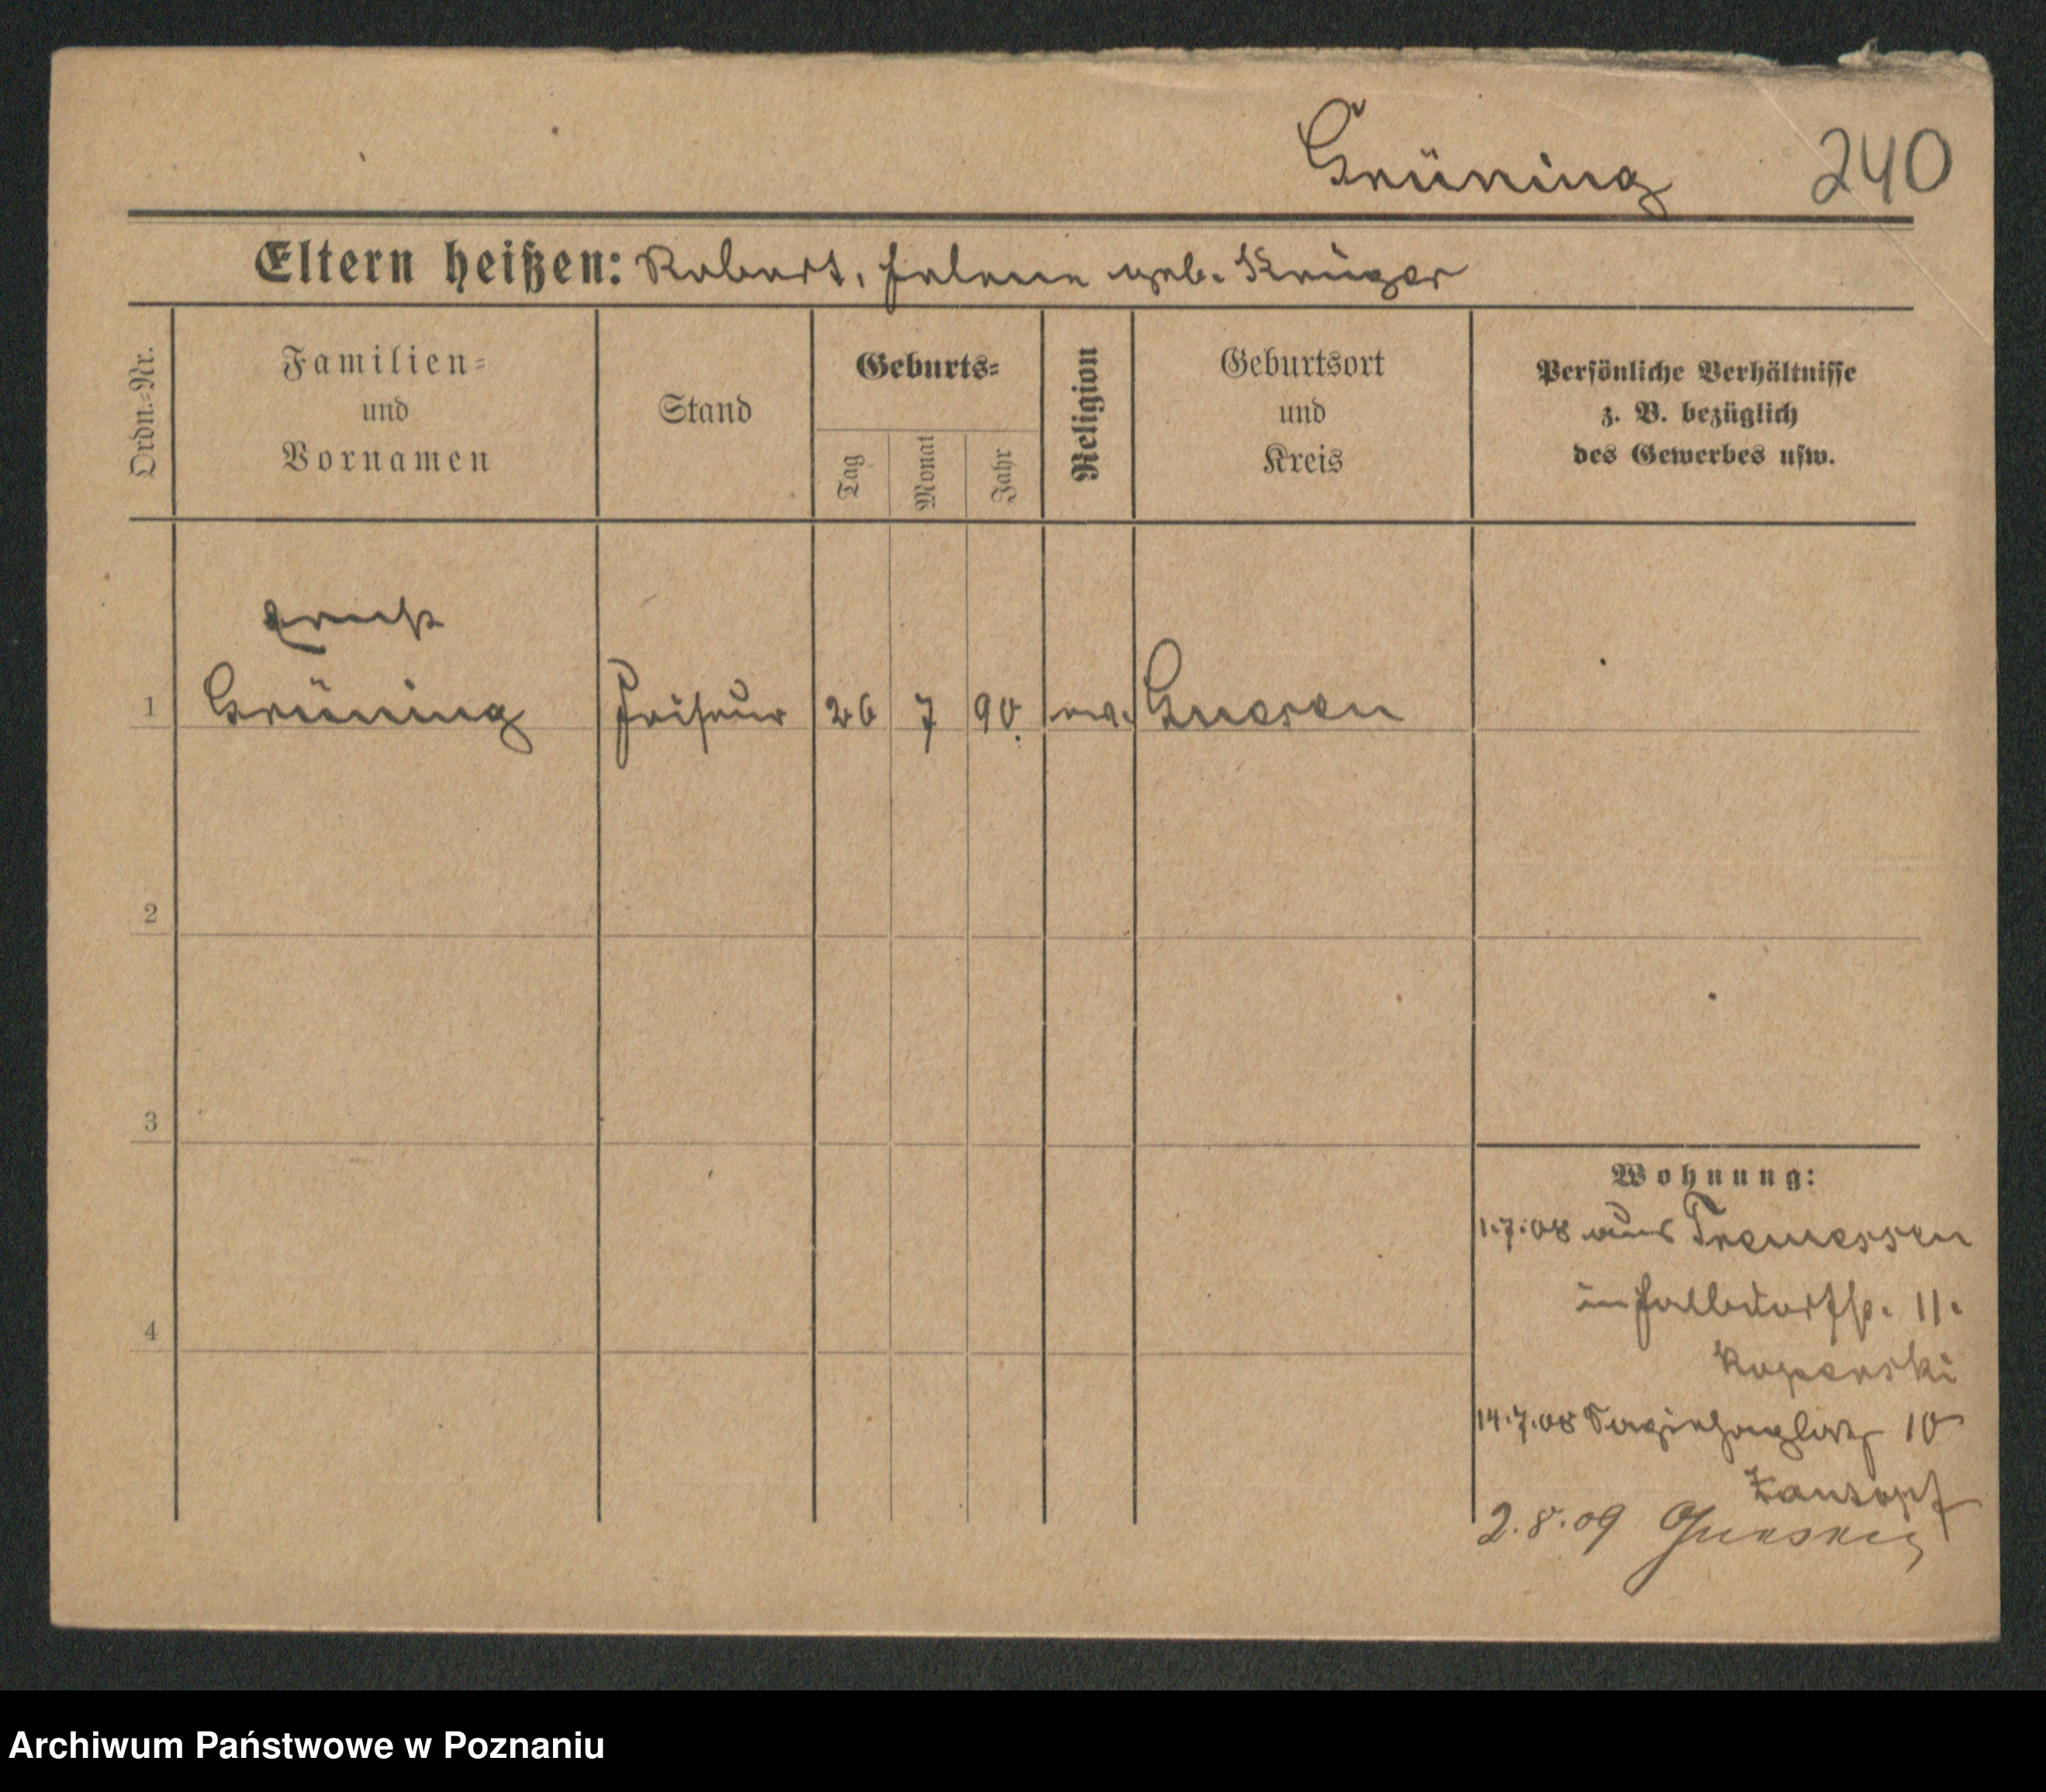 Grüning 240
Eltern heißen: Robert, Helene geb. Krüger
Ordn.-Nr.
Familien-
und
Vornamen
Stand
Geburts-
Tag
Monat
Jahr
Religion
Geburtsort
und
Kreis
Persönliche Verhältnisse
z. B. bezüglich
des Gewerbes usw.
Ernst
1 Grüning Friseur 26 7 90. ev. Gnesen
2
3
4
Wohnung:
1.7.08 aus Tremessen
in Halbdorfstr. 11.
Koperski
14.7.08 10
2.8.09 Gnesen
Archiwum Państwowe w Poznaniu